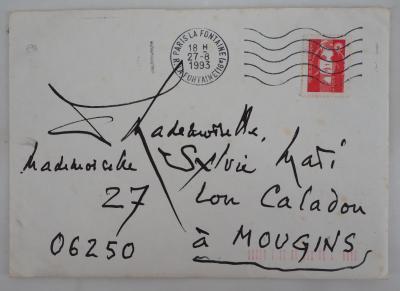 PARIS LA FONTAINE (16)
18 H
27-8
1993
R. LA FONTAINE (16)
Mademoiselle,
Mademoiselle Sylvie Mari
27 Lou Caladou
06250 à MOUGINS